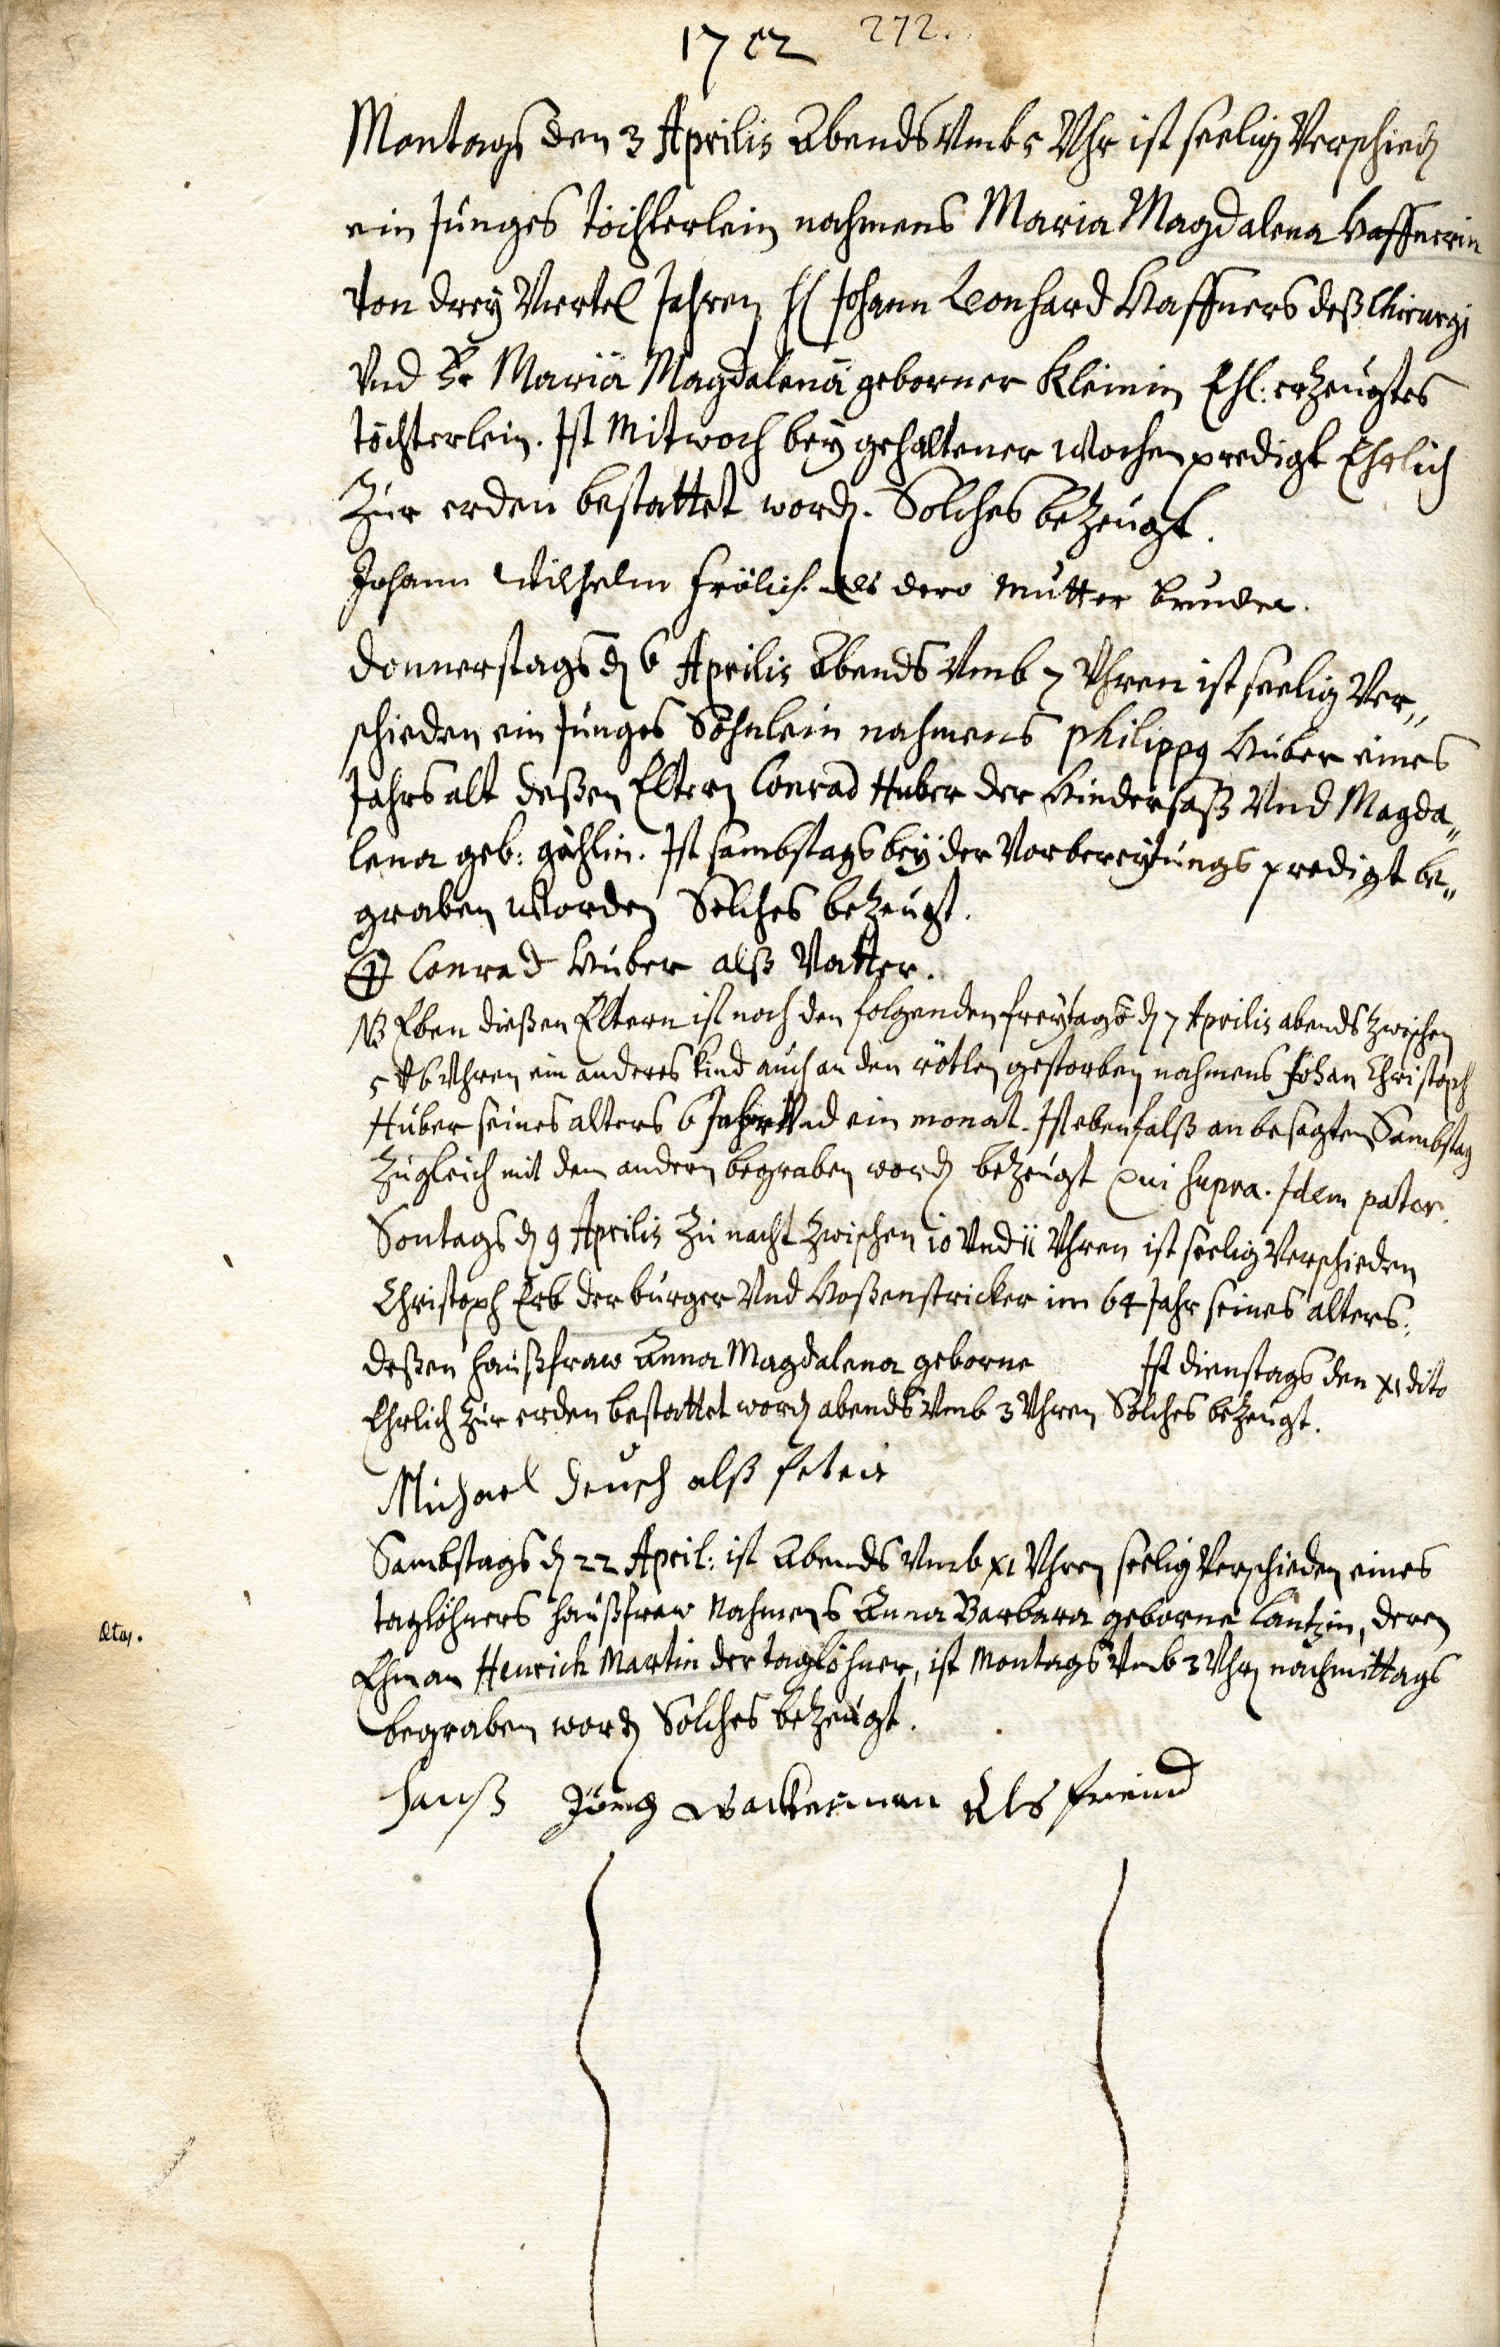 1702 272.
Montags den 3 Aprilis Abends Vmb 5 Vhr ist seelig Verschied
ein Junges töchterlein nahmens Maria Magdalena Haffnerin
Von drey Viertel Jahren H Johann Leonhard Haffners deß Chirurgi
Vnd Fr Mariä Magdalenä geborner Kleinin Ehl: erzeugtes
töchterlein. Ist Mitwoch bey gehaltener Wochen predigt Ehrlich
Zur erden bestattet word. Solches beZeügt.
Johann Wilhelm Frölich als dero Mutter bruder.
Donnerstags d 6 Aprilis Abends Vmb 7 Vhren ist seelig Ver„
schieden ein Junges Söhnlein nahmens Philippg Huber eines
Jahrs alt deßen Eltern Conrad Huber der Hindersaß Vnd Magda„
lena geb: gächlin. Ist sambstags bey der Vorbereytungs predigt be„
graben Worden Solches beZeügt.
Conrad Huber alß Vatter.
NB Eben dießen Eltern ist noch den folgenden freytags d 7 Aprilis abends Zwischen
5 & 6 Vhren ein anderes kind auch an den rötlen gestorben nahmens Johan Christoph
Huber seines alters 6 Jahr Vnd ein monat. Ist ebenfalß an besagten Sambstag
Zugleich mit dem andern begraben word beZeügt qui supra. Idem pater.
Sontags d 9 Aprilis Zu nacht Zwischen 10 Vnd 11 Vhren ist seelig Verschieden
Christoph Erb der burger Vnd Hoßenstricker im 64 Jahr seines alters,
deßen Haußfraw Anna Magdalena geborne Ist dienstags den XI dito
Ehrlich Zur erden bestattet word abends Vmb 3 Vhren Solches beZeügt.
Michael Deusch alß
Sambstags d 22 April: ist Abends Vmb XI Vhren seelig Verschieden eines
taglöhners Haußfraw Nahmens Anna Barbara geborne Lantzin, deren
Ehman Henrich Martin der taglöhner, ist Montags Vmb 3 Vhr nachmittags
begraben word Solches beZeügt.
Hanß Jörg Wackerman Als freund